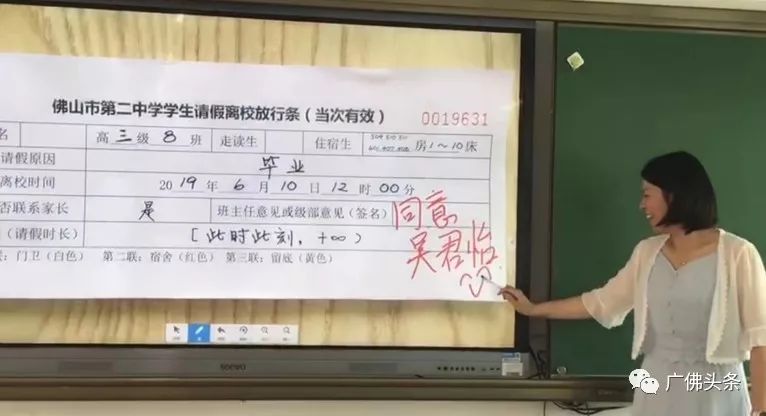 佛山市第二中学学生请假离校放行条（当次有效） 0019631
名 高三级8班 走读生 住宿生 房1~10床
请假原因 毕业
离校时间 2019年6月10日12时00分
否联系家长 是 班主任意见或级部意见（签名） 同意
（请假时长） [此时此刻，+∞) 吴君怡
联：门卫（白色） 第二联：宿舍（红色） 第三联：留底（黄色）
seewo
广佛头条